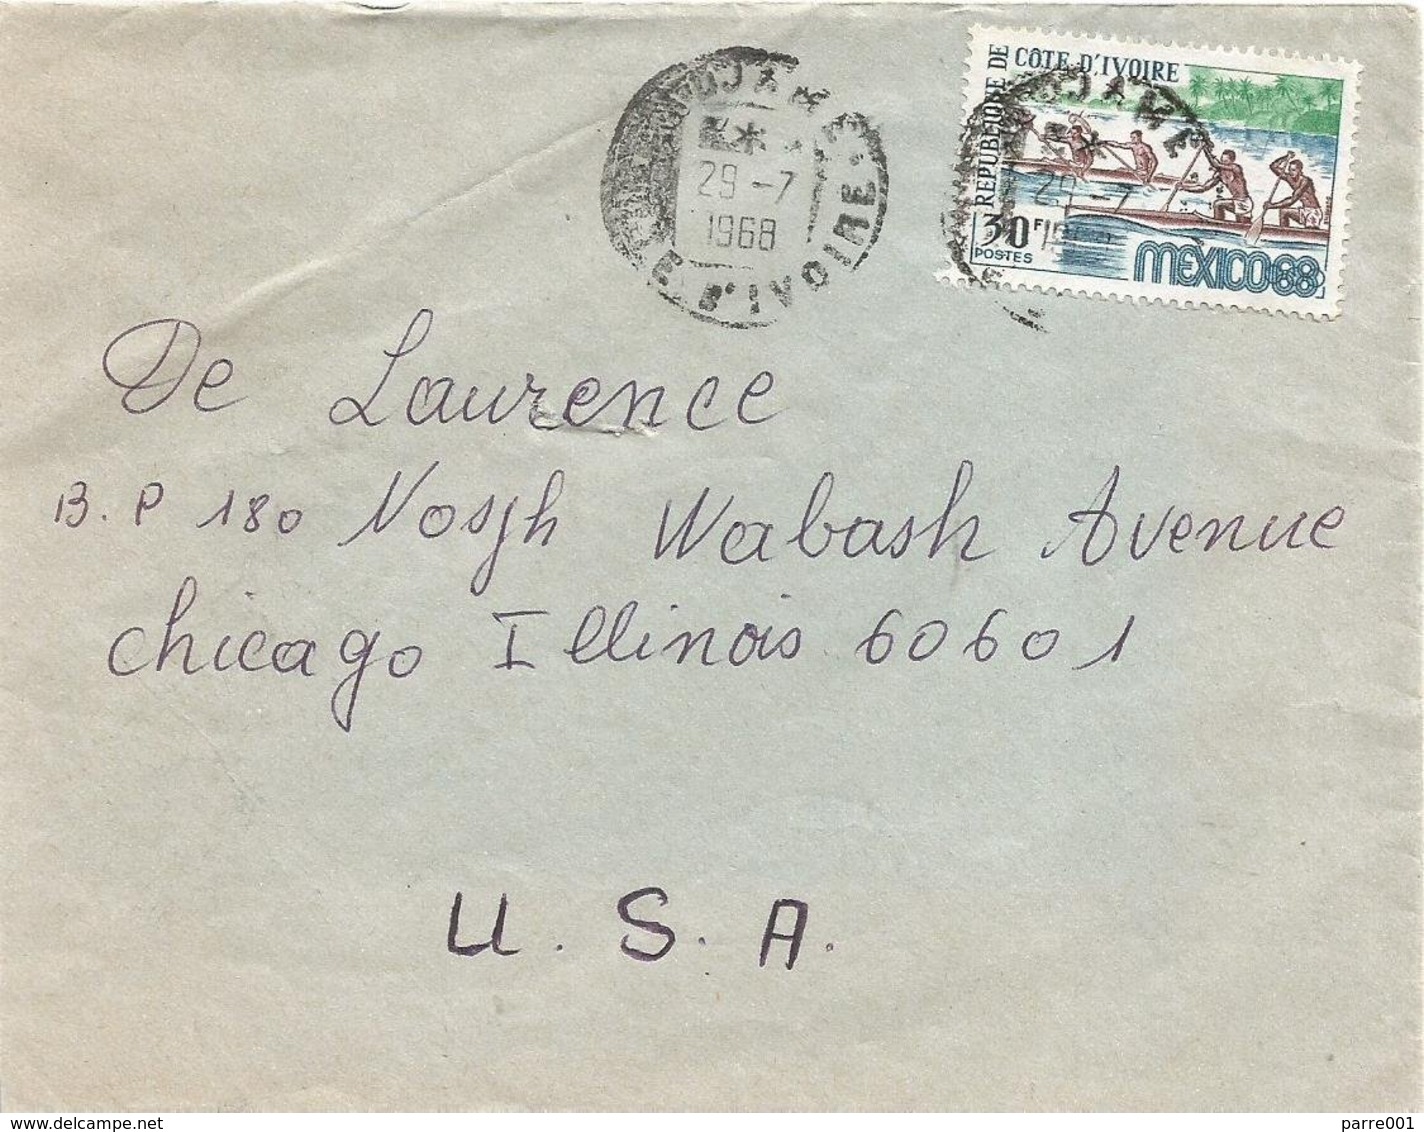 REPUBLIQUE DE CÔTE D'IVOIRE
30F
POSTES
MEXICO 68
29 -7
1968
E D'IVOIRE
De Laurence
B.P 180 Nosjh Wabash Avenue
Chicago Illinois 60601
U.S.A.
www.delcampe.net
parre001